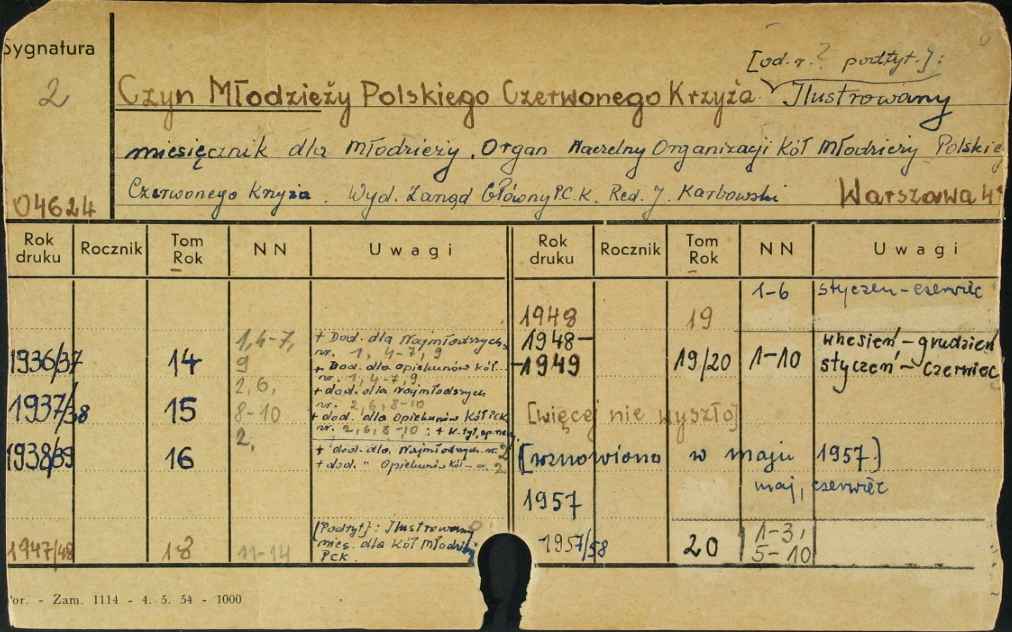 Sygnatura
2
04624
[od. r. ? podtyt.]:
Czyn Młodzieży Polskiego Czerwonego Krzyża. Ilustrowany
miesięcznik dla Młodzieży. Organ Naczelny Organizacji Kół Młodzieży Polskie
Czerwonego Krzyża. Wyd. Zarząd Główny P.C.K. Red. J. Karbowski Warszawa 4°
Rok druku Rocznik Tom Rok NN Uwagi
1936/37 14 1,4-7, 9 + Dod. dla Najmłodszych,
nr. 1, 4-7, 9
+ Dod. dla opiekunów Kół.
nr. 1, 4-7, 9.
1937/38 15 2, 6, 8-10 + dod. dla Najmłodszych
nr. 2, 6, 8-10
+ dod. dla Opiekunów Kół PCK
nr. 2, 6, 8-10; + k. tyt.
1938/39 16 2, + dod. dla Najmłodszych nr. 2
+ dod. " Opiekunów Kół - " - 2
1947/48 18 11-14 [Podtyt]: Ilustrowany
mies. dla Kół Młodzieży
PCK.
Rok druku Rocznik Tom Rok NN Uwagi
1948 19 1-6 styczeń - czerwiec
1948-
1949 19/20 1-10 wrzesień - grudzień
styczeń - czerwiec
[więcej nie wyszło]
[wznowiono w maju 1957]
1957 maj, czerwiec
1957/58 20 1-3, 5-10
or. - Zam. 1114 - 4. 5. 54 - 1000